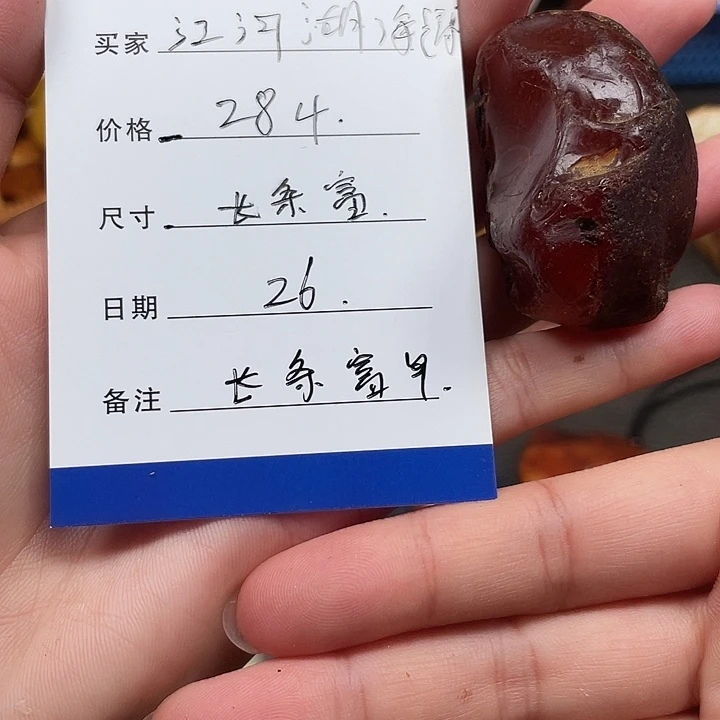 买家 江河湖
价格 284.
尺寸 长条富.
日期 26.
备注 长条富甲.